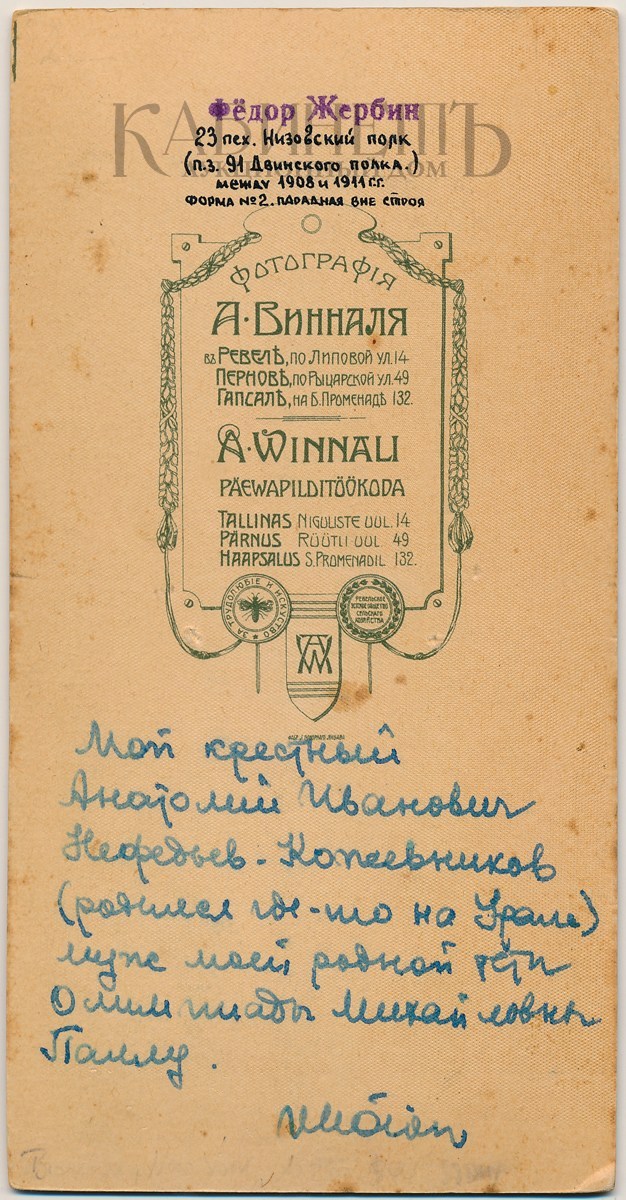 КАБИНЕТЪ
АУКЦИОННЫЙ ДОМ
Фёдор Жербин
23 пех. Низовский полк
(п.з. 91 Двинского полка.)
между 1908 и 1911 г.г.
ФОРМА №2. ПАРАДНАЯ ВНЕ СТРОЯ
ФОТОГРАФІЯ
А·ВИННАЛЯ
въ РЕВЕЛѢ, по Липовой ул. 14
ПЕРНОВѢ, по Рыцарской ул. 49
ГАПСАЛѢ, на Б. Променадѣ 132.
A·WINNALI
PÄEWAPILDITÖÖKODA
TALLINAS NIGULISTE UUL. 14
PÄRNUS RÜÜTLI UUL 49
HAAPSALUS S. PROMENADIL 132.
ЗА ТРУДОЛЮБІЕ И ИСКУСТВО
РЕВЕЛЬСКОЕ
ОБЩЕСТВО
СЕЛЬСКАГО
ХОЗЯЙСТВА
AW
Мой крестный
Анатолий Иванович
Нефедьев-Кожевников
(родился где-то на Урале)
муж моей родной тёти
Олимпиады Михайловны
Паллу.